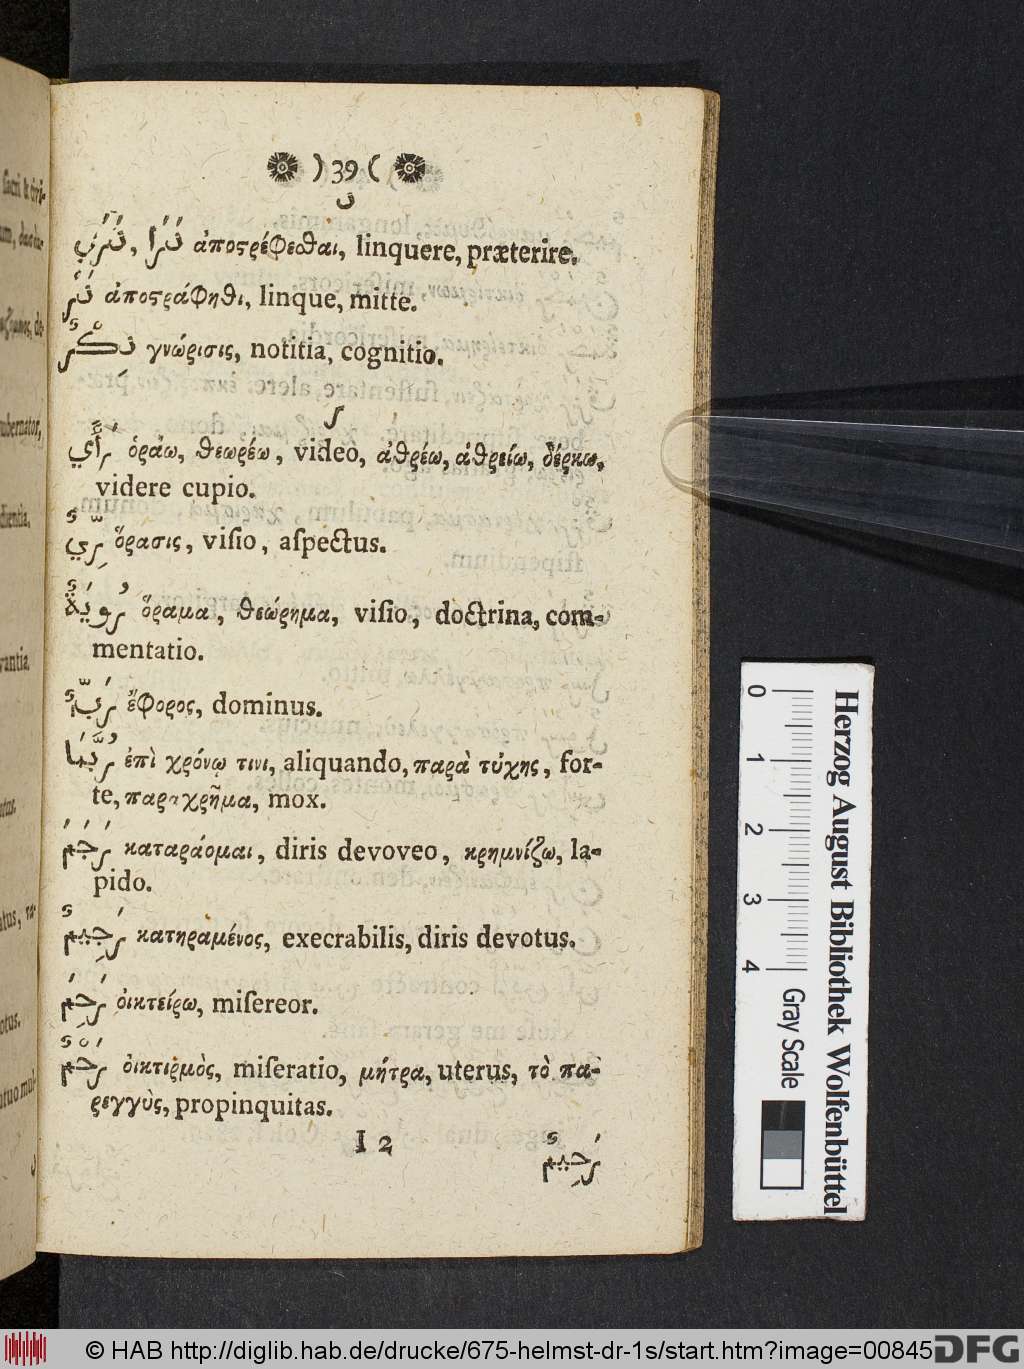 ) 39 (
ن
نَزَا ,نَزَيَ ἀποςρέφεσθαι, linquere, præterire.
ἀποςράφηθι, linque, mitte.
γνώρισις, notitia, cognitio.
ر
رَأَي ὁράω, θεωρέω, video, ἀθρέω, ἀθρείω, δέρκω,
videre cupio.
ὅρασις, viſio, aſpectus.
ὅραμα, θεώρημα, viſio, doctrina, com-
mentatio.
رَبٌّ ἔφορος, dominus.
رُبَّمَا ἐπὶ χρόνῳ τινι, aliquando, παρὰ τύχης, for-
te, παραχρῆμα, mox.
رَجَمَ καταράομαι, diris devoveo, κρημνίζω, la-
pido.
رَجِيمٌ κατηραμένος, execrabilis, diris devotus.
رَحِمَ ὀικτείρω, miſereor.
رَحْمٌ ὀικτιρμὸς, miſeratio, μήτρα, uterus, τὸ πα-
ρεγγὺς, propinquitas.
I 2
رَحِيمٌ
ſacri &
dientia.
0 1 2 3 4
Gray Scale
Herzog August Bibliothek Wolfenbüttel
© HAB http://diglib.hab.de/drucke/675-helmst-dr-1s/start.htm?image=00845
DFG